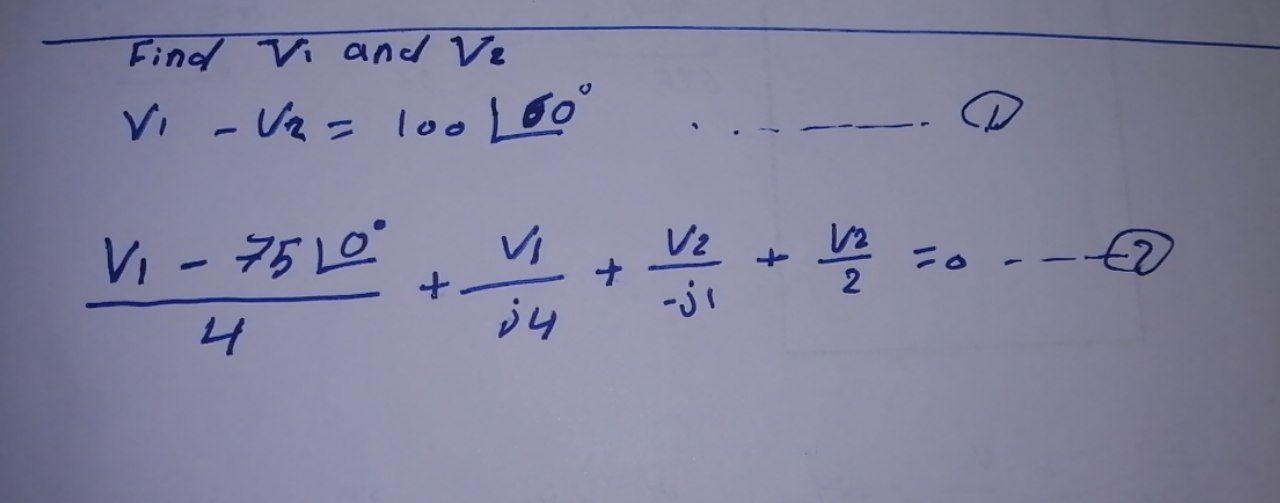 Find V1 and V2
V1 - V2 = 100 ∠60° ..------. ①
(V1 - 75∠0°)/4 + V1/j4 + V2/-j1 + V2/2 = 0 ---- ②